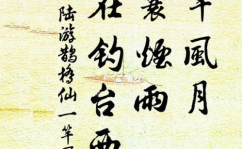 竿風月
蓑煙雨
在釣台西
陸游鵲橋仙一竿風